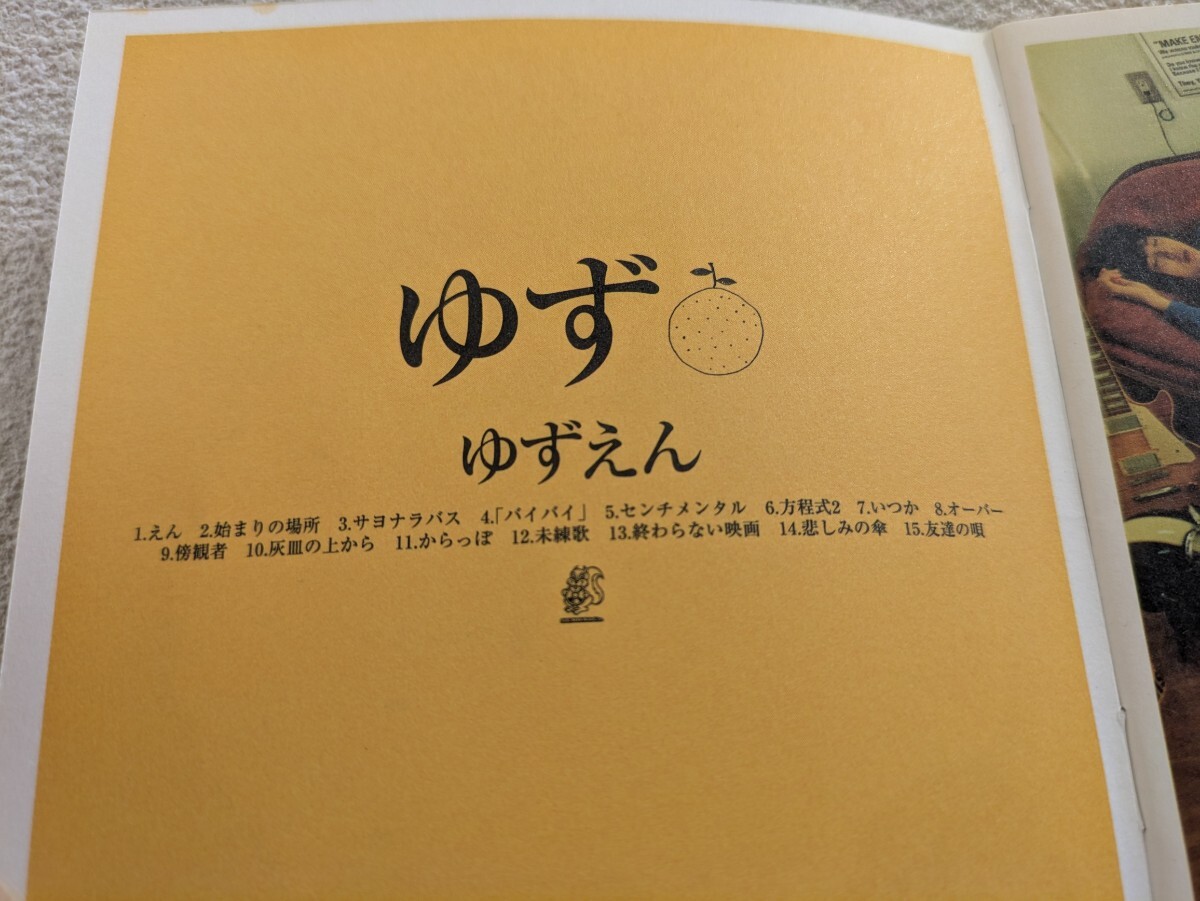 ゆず
ゆずえん
1.えん 2.始まりの場所 3.サヨナラバス 4.「バイバイ」 5.センチメンタル 6.方程式2 7.いつか 8.オーバー
9.傍観者 10.灰皿の上から 11.からっぽ 12.未練歌 13.終わらない映画 14.悲しみの傘 15.友達の唄
"MAKE